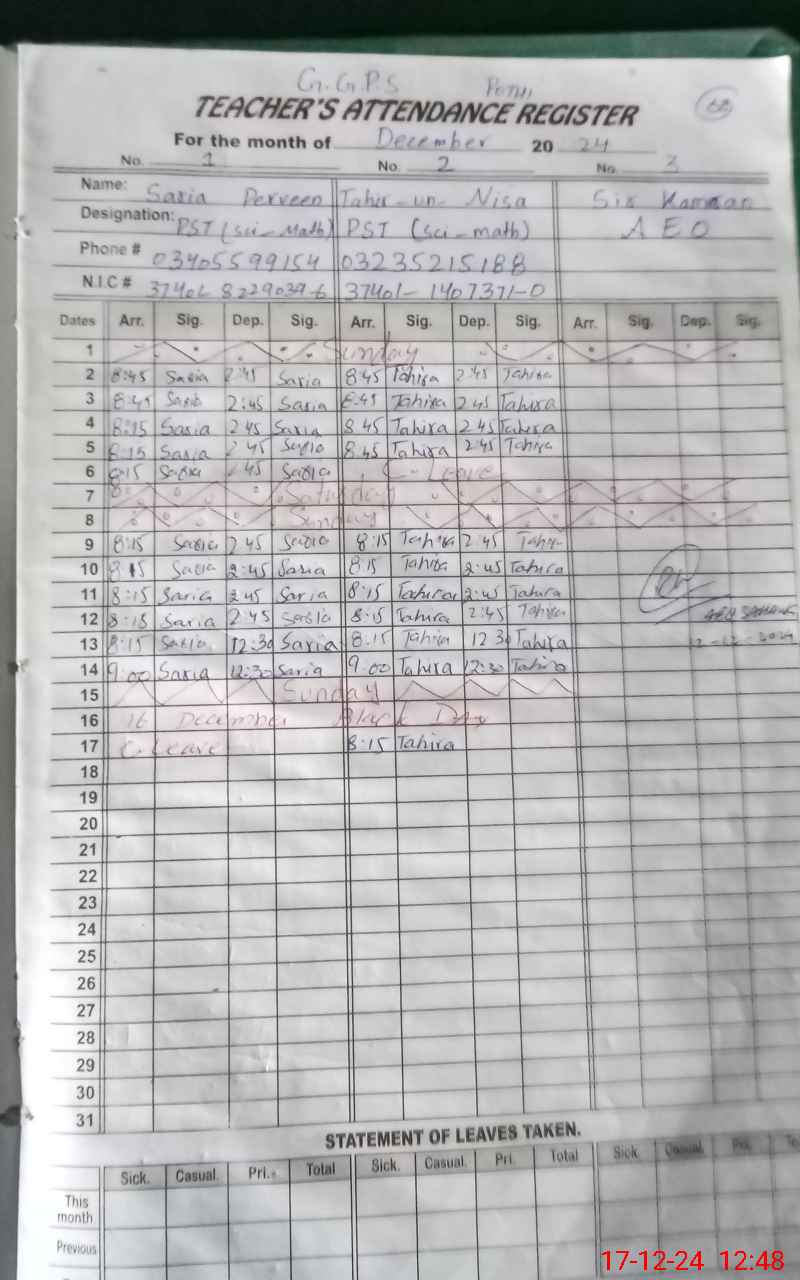 G.G.P.S
TEACHER'S ATTENDANCE REGISTER
For the month of December 20 24
No. 1 No. 2 No. 3
Name: Saria Perveen Tahir-un-Nisa Sir Kamran
Designation: PST (sci-Math) PST (sci-math) AEO
Phone # 03405599154 03235215188
N.I.C # 37401-1407371-0
Dates Arr. Sig. Dep. Sig. Arr. Sig. Dep. Sig. Arr. Sig. Dep. Sig.
1 Sunday
2 8:45 Saria 2:45 Saria 8:45 Tahira 2:45 Tahira
3 8:45 Saria 2:45 Saria 8:45 Tahira 2:45 Tahira
4 8:15 Saria 2:45 Saria 8:45 Tahira 2:45 Tahira
5 8:15 Saria 2:45 Saria 8:45 Tahira 2:45 Tahira
6 8:15 Saria 2:45 Saria C-Leave
7 Saturday
8 Sunday
9 8:15 Saria 2:45 Saria 8:15 Tahira 2:45 Tahira
10 8:15 Saria 2:45 Saria 8:15 Tahira 2:45 Tahira
11 8:15 Saria 2:45 Saria 8:15 Tahira 2:45 Tahira
12 8:15 Saria 2:45 Saria 8:15 Tahira 2:45 Tahira
13 8:15 Saria 12:30 Saria 8:15 Tahira 12:30 Tahira
12-12-2024
14 9:00 Saria 12:30 Saria 9:00 Tahira 12:30 Tahira
15 Sunday
16 16 December Black Day
17 C.Leave 8:15 Tahira
18
19
20
21
22
23
24
25
26
27
28
29
30
31
STATEMENT OF LEAVES TAKEN.
Sick. Casual. Pri. Total Sick. Casual. Pri. Total Sick. Casual. Pri.
This month
Previous
17-12-24 12:48